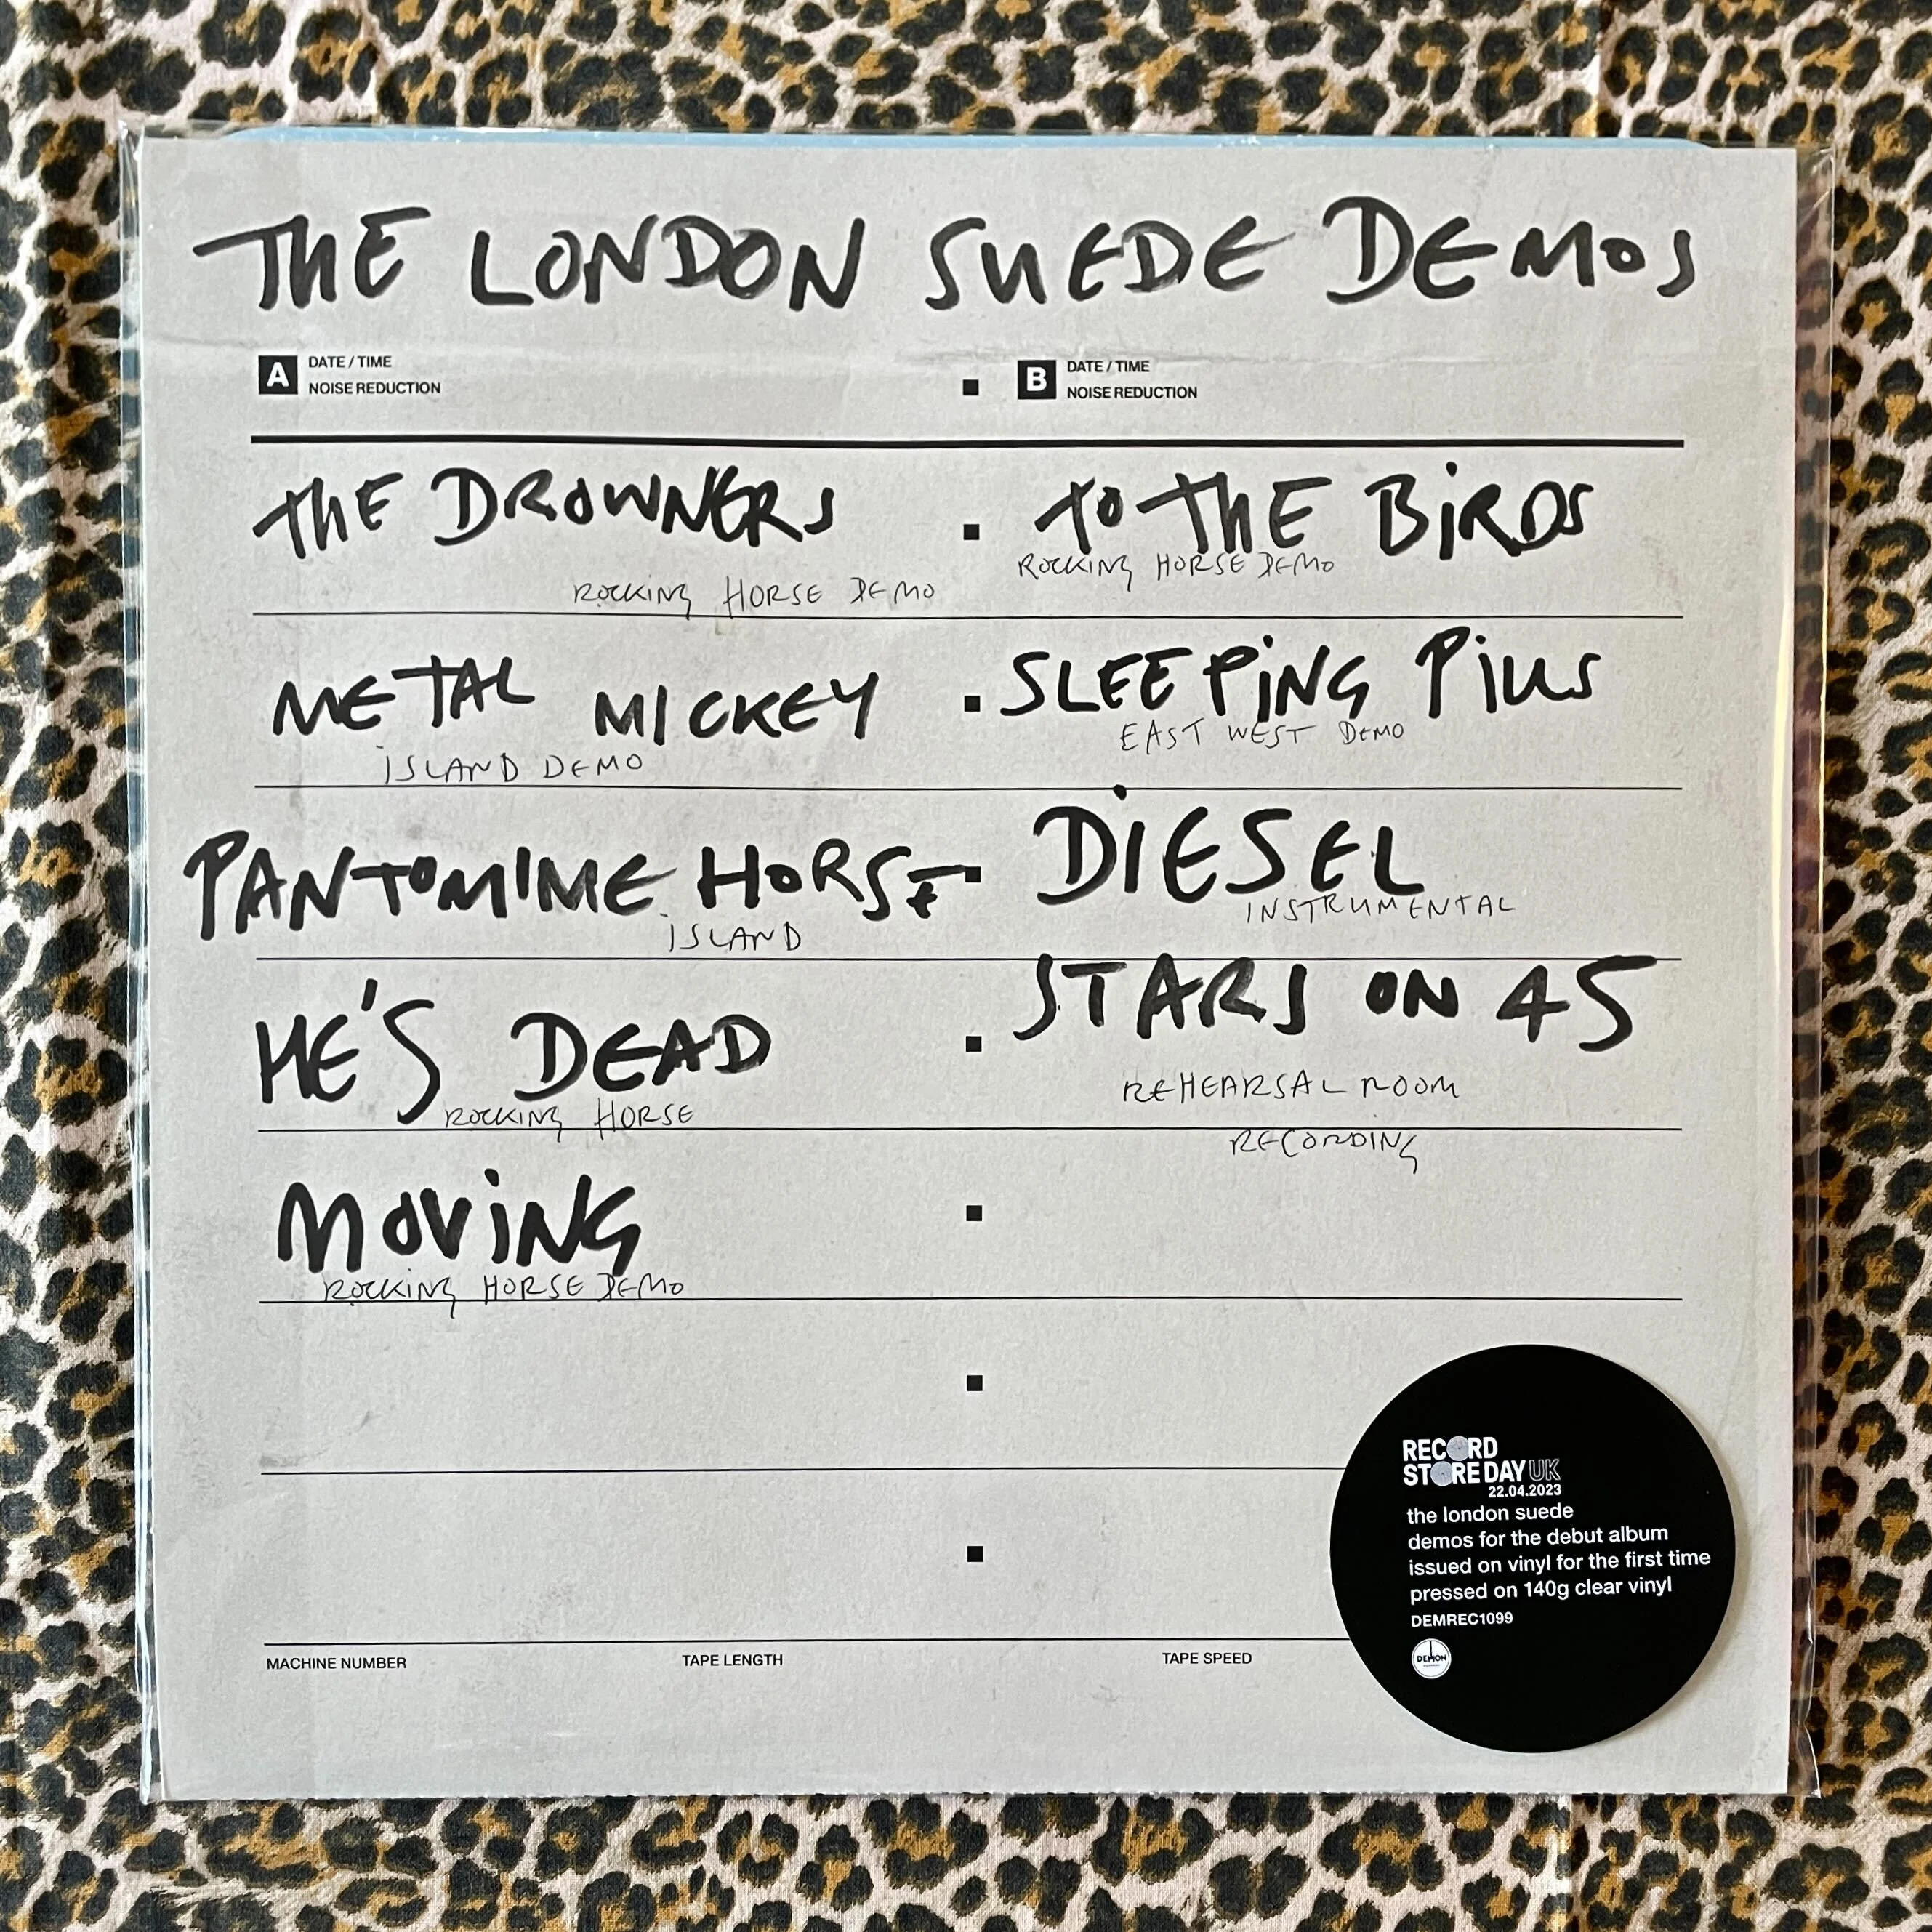 THE LONDON SUEDE DEMOS
A DATE / TIME
NOISE REDUCTION
B DATE / TIME
NOISE REDUCTION
THE DROWNERS
ROCKING HORSE DEMO
TO THE BIRDS
ROCKING HORSE DEMO
METAL MICKEY
ISLAND DEMO
SLEEPING PILLS
EAST WEST DEMO
PANTOMIME HORSE
ISLAND
DIESEL
INSTRUMENTAL
HE'S DEAD
ROCKING HORSE
STARS ON 45
REHEARSAL ROOM
RECORDING
MOVING
ROCKING HORSE DEMO
RECORD
STORE DAY UK
22.04.2023
the london suede
demos for the debut album
issued on vinyl for the first time
pressed on 140g clear vinyl
DEMREC1099
DEMON
MACHINE NUMBER
TAPE LENGTH
TAPE SPEED